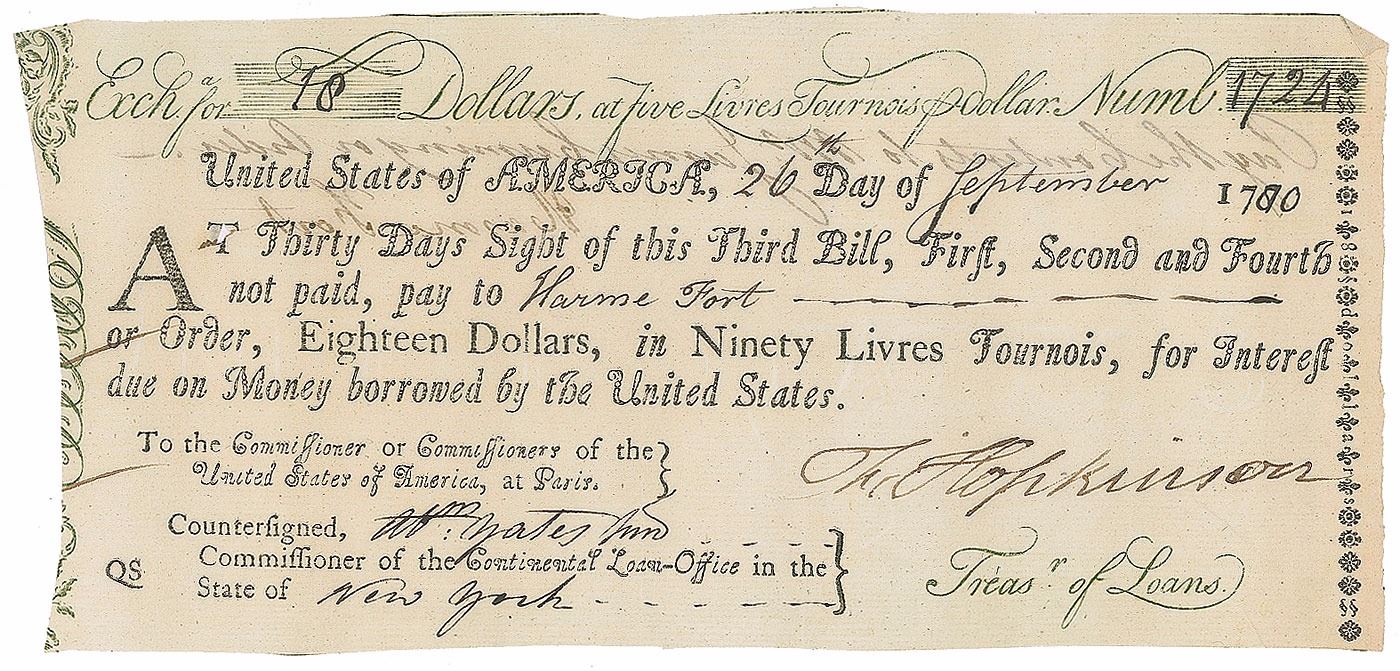 Exch.ᵃ for 18 Dollars, at five Livres Tournois ℔ dollar. Numb. 1724
United States of AMERICA, 26th Day of September 1780
AT Thirty Days Sight of this Third Bill, Firſt, Second and Fourth
not paid, pay to Harme Fort
or Order, Eighteen Dollars, in Ninety Livres Tournois, for Intereſt
due on Money borrowed by the United States.
To the Commiſſioner or Commiſſioners of the
United States of America, at Paris.
Counterſigned,
Commiſſioner of the Continental Loan-Office in the
QS State of New York
Fˢ Hopkinson
Treasʳ of Loans.
18 § dollars